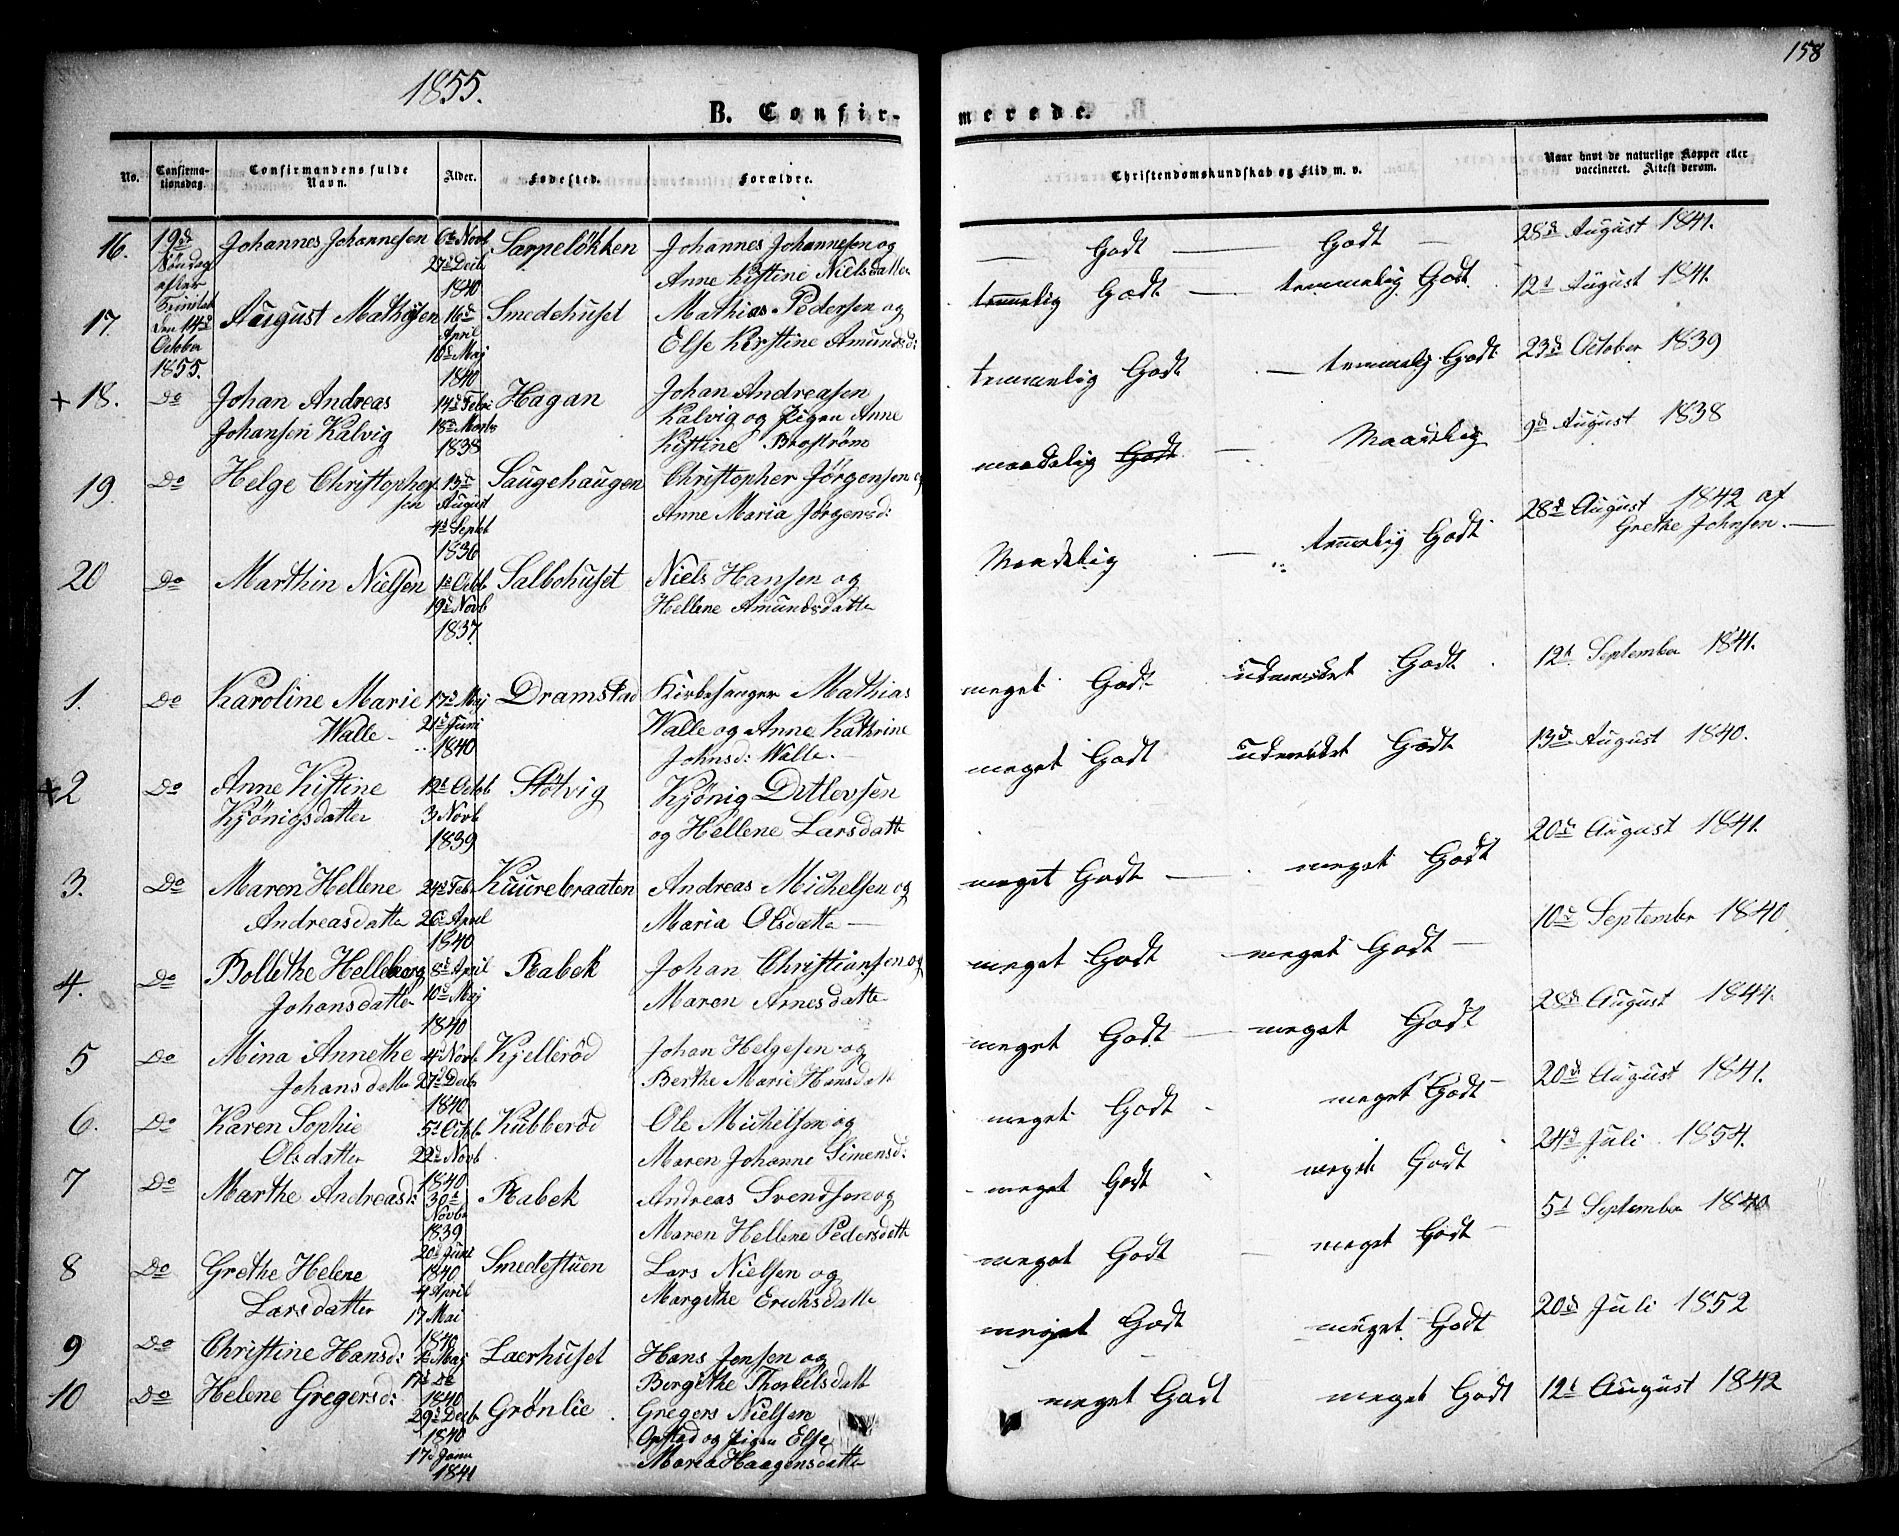 158
1855.
B. Confir-
merede.
No.
Confirma-
tionsdag.
Confirmandens fulde
Navn.
Alder.
Fødested.
Forældre.
Christendomskundskab og Flid m. v.
Naar havt de naturlige Kopper eller
vaccineret. Attest derom.
16. 19de Johannes Johannesen 6te Novb Sarpeløkken Johannes Johannesen og Godt Godt 28de August 1841.
Søndag 27de Decb Anne Kistine Nielsdatter
efter 1840
Trinitat
17. den 14de August Mathisen 16de Smedehuset Mathias Pedersen og temmelig Godt temmelig Godt 12te August 1841.
October April Else Kirstine Amundsd:
1855. 16de Maj
1840
+ 18. Do Johan Andreas 14de Febr Hagan Johan Andreasen temmelig Godt temmelig Godt 23de October 1839
Johansen Kalvig 18de Marts Kalvig og Pigen Anne
1838 Kistine Brostrøm
19. Do Helge Christopher 13de Saugehaugen Christopher Jørgensen og maadelig Godt Maadelig 9de August 1838
sen August Anne Maria Jørgensd:
4de Septb
1836
20 Do Marthin Nielsen 1te Octb Salbohuset Niels Hansen og Maadelig temmelig Godt 28de August 1842 af
19de Novb Hellene Amundsdatter Grethe Johnsen.
1837.
1. Do Karoline Marie 17de Maj Dramstad Kirkesanger Mathias meget Godt udmærket Godt 12te September 1841.
Walle 21de Juni Walle og Anne Kathrine
1840 Johnsd: Walle.
+ 2 Do Anne Kistine 12te Octb Støtvig Kjønig Ditlevsen meget Godt udmærket Godt 13de August 1840.
Kjønigsdatter 3 Novb og Hellene Larsdatter
1839
3. Do Maren Hellene 24de Feb Kuurebraaten Andreas Michelsen og meget Godt meget Godt 20de August 1841.
Andreasdatter 26de April Maria Olsdatter
1840
4. Do Bollethe Helleborg 8de April Rabek Johan Christiansen og meget Godt meget Godt 10de September 1840
Johansdatter 10de Maj Maren Arnesdatter
1840
5 Do Mina Annethe 4de Novb Kjellerød Johan Helgesen og meget Godt meget Godt 28de August 1844.
Johansdatter 27de Decb Berthe Marie Hansdatt
1840
6. Do Karen Sophie 5te Octb Kubberød Ole Michelsen og meget Godt meget Godt 20de August 1841.
Olsdatter 22de Novb Maren Johanne Simensd:
1840
7 Do Marthe Andreasd: 30te Rabek Andreas Svendsen og meget Godt meget Godt 24de Juli 1854.
Novb Maren Hellene Pedersdatt
1839
20de Juni
8 Do Grethe Helene 1840 Smedestuen Lars Nielsen og meget Godt meget Godt 5te September 1840
Larsdatter 4 April Margithe Erichsdatt
17 Mai
1840
9 Do Christine Hansd: 1te Maj Laerhuset Hans Jensen og meget Godt meget Godt 20de Juli 1852
17de Do Bergithe Thorkelsdatt
1840
10 Do Helene Gregersd: 29de Decb Grønlie Gregers Nielsen meget Godt meget Godt 12te August 1842
1840 Opstad og Pigen Else
17de Janu Maria Haagensdatter
1841